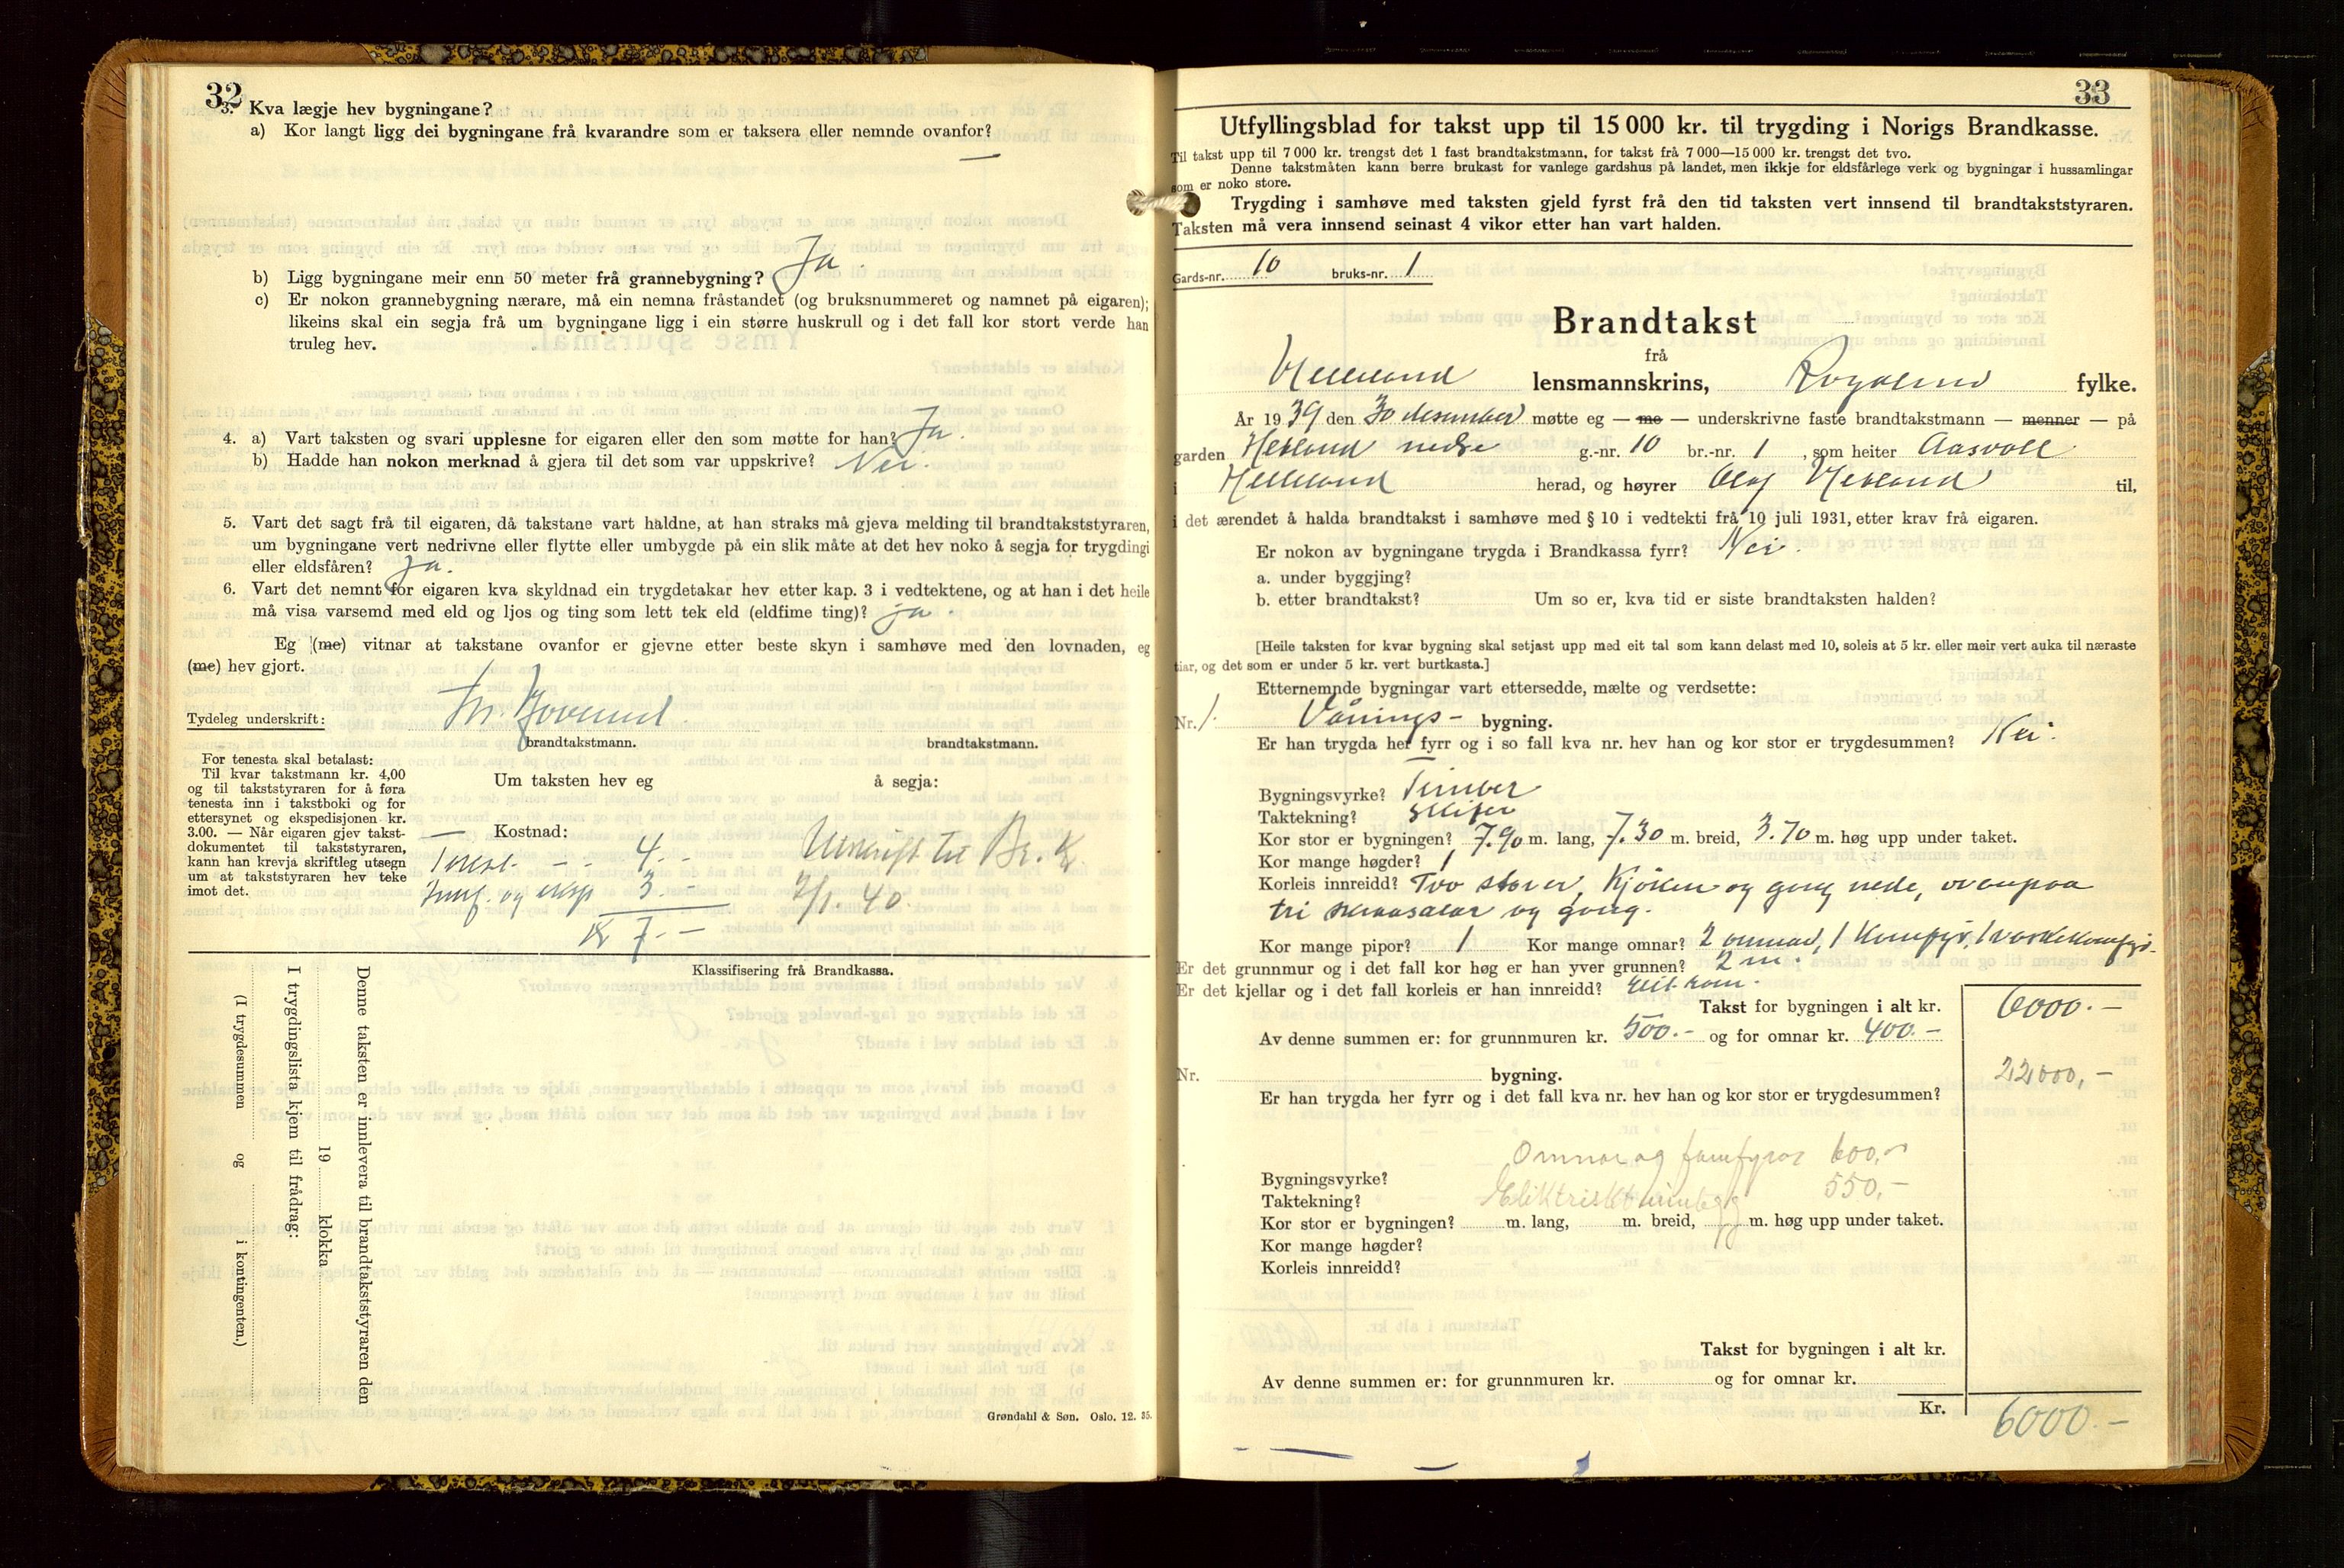 32
3. Kva lægje hev bygningane?
a) Kor langt ligg dei bygningane frå kvarandre som er taksera eller nemnde ovanfor?
—
b) Ligg bygningane meir enn 50 meter frå grannebygning? Ja.
c) Er nokon grannebygning nærare, må ein nemna fråstandet (og bruksnummeret og namnet på eigaren);
likeins skal ein segja frå um bygningane ligg i ein større huskrull og i det fall kor stort verde han
truleg hev.
4. a) Vart taksten og svari upplesne for eigaren eller den som møtte for han? Ja.
b) Hadde han nokon merknad å gjera til det som var uppskrive? Nei.
5. Vart det sagt frå til eigaren, då takstane vart haldne, at han straks må gjeva melding til brandtakststyraren,
um bygningane vert nedrivne eller flytte eller umbygde på ein slik måte at det hev noko å segja for trygdingi
eller eldsfåren? ja.
6. Vart det nemnt for eigaren kva skyldnad ein trygdetakar hev etter kap. 3 i vedtektene, og at han i det heile
må visa varsemd med eld og ljos og ting som lett tek eld (eldfime ting)? ja.
Eg (me) vitnar at takstane ovanfor er gjevne etter beste skyn i samhøve med den lovnaden, eg
(me) hev gjort.
Tydeleg underskrift:
brandtakstmann. brandtakstmann.
For tenesta skal betalast:
Til kvar takstmann kr. 4,00
og til takststyraren for å føra
tenesta inn i takstboki og for
ettersynet og ekspedisjonen kr.
3.00. — Når eigaren gjev takst-
dokumentet til takststyraren,
kann han krevja skriftleg utsegn
um at takststyraren hev teke
imot det.
Um taksten hev eg å segja:
— Kostnad:
4. -
og eksp 3. -
Kr 7. -
Utskrift til Br. K.
2/1. 40.
Klassifisering frå Brandkassa.
Denne taksten er innlevera til brandtakststyraren den
19 klokka
I trygdingslista kjem til frådrag:
(I trygdesummen og i kontingenten.)
Grøndahl & Søn. Oslo. 12. 35.
33
Utfyllingsblad for takst upp til 15 000 kr. til trygding i Norigs Brandkasse.
Til takst upp til 7 000 kr. trengst det 1 fast brandtakstmann, for takst frå 7 000—15 000 kr. trengst det tvo.
Denne takstmåten kann berre brukast for vanlege gardshus på landet, men ikkje for eldsfårlege verk og bygningar i hussamlingar
som er noko store.
Trygding i samhøve med taksten gjeld fyrst frå den tid taksten vert innsend til brandtakststyraren.
Taksten må vera innsend seinast 4 vikor etter han vart halden.
Gards-nr. 10 bruks-nr. 1
Brandtakst
frå
Helleland lensmannskrins, Rogaland fylke.
År 1939 den 30 desember møtte eg — me — underskrivne faste brandtakstmann — menner — på
garden Hetland nedre g.-nr. 10 br.-nr. 1, som heiter Aasvoll
i Helleland herad, og høyrer Olaf Hetland til,
i det ærendet å halda brandtakst i samhøve med § 10 i vedtekti frå 10 juli 1931, etter krav frå eigaren.
Er nokon av bygningane trygda i Brandkassa fyrr? Nei.
a. under byggjing?
b. etter brandtakst? Um so er, kva tid er siste brandtaksten halden?
[Heile taksten for kvar bygning skal setjast upp med eit tal som kann delast med 10, soleis at 5 kr. eller meir vert auka til næraste
tiar, og det som er under 5 kr. vert burtkasta.]
Etternemnde bygningar vart ettersedde, mælte og verdsette:
Nr. 1. Vånings- bygning.
Er han trygda her fyrr og i so fall kva nr. hev han og kor stor er trygdesummen? Nei.
Bygningsvyrke? Timber
Taktekning? Skifer
Kor stor er bygningen? 7.90 m. lang, 7.30 m. breid, 3.70 m. høg upp under taket.
Kor mange høgder? 1
Korleis innreidd? Tvo stover, Kjøken og gong nede, ovanpaa
tri skraasalar og gong.
Kor mange pipor? 1 Kor mange omnar? 2 omnar, 1 Komfyr, 1 vaskekomfyr.
Er det grunnmur og i det fall kor høg er han yver grunnen? 2 m.
Er det kjellar og i det fall korleis er han innreidd? Eit rom.
Takst for bygningen i alt kr. 6000.—
Av denne summen er: for grunnmuren kr. 500.— og for omnar kr. 400.—
22000,—
Nr. bygning.
Er han trygda her fyrr og i det fall kva nr. hev han og kor stor er trygdesummen?
Omnar og komfyrar 600,—
Bygningsvyrke?
Elektrisk 550,—
Taktekning?
Kor stor er bygningen? m. lang, m. breid, m. høg upp under taket.
Kor mange høgder?
Korleis innreidd?
Takst for bygningen i alt kr.
Av denne summen er: for grunnmuren kr. og for omnar kr.
Kr. 6000.—